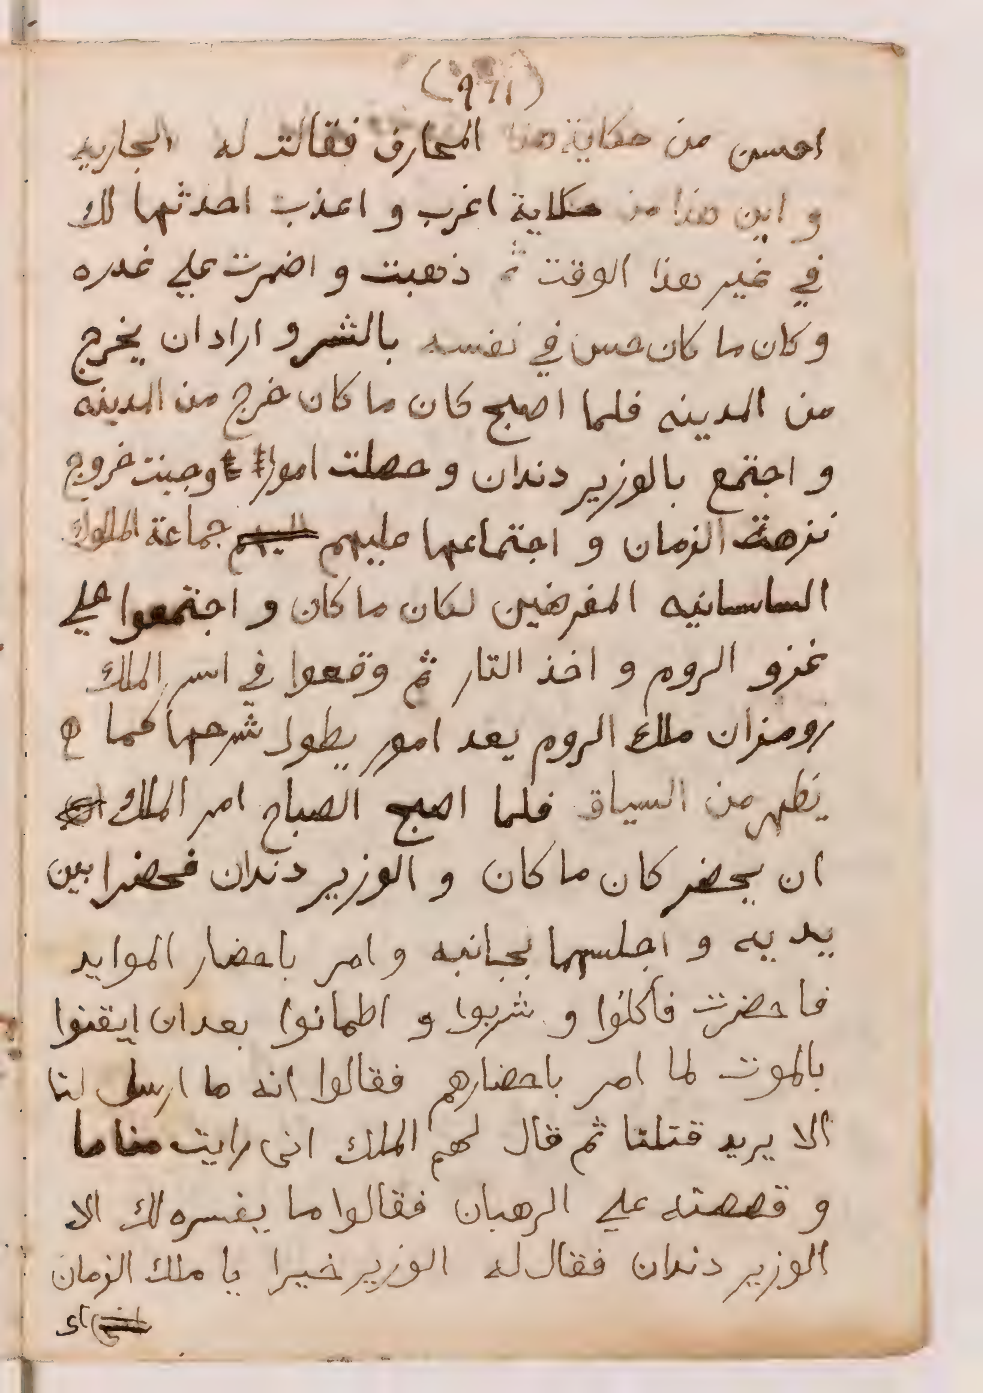 احسن من حكاية هذا المحارف فقالت له الجاريه
و اين هذا من حكاية اغرب و اعذب احدثها لك
في غير هذا الوقت ثم ذهبت و اضمرت علي غدره
و كان ما كان حس في نفسه بالشر و اراد ان يخرج
من المدينه فلما اصبح كان ما كان خرج من المدينه
و اجتمع بالوزير دندان و حصلت امورا اوجبت خروج
نزهة الزمان و اجتماعها عليهم جماعة الملوك
الساسانيه المغرضين لكان ما كان و اجتمعوا علي
غزو الروم و اخذ التار ثم وقعوا في اسر الملك
رومزان ملك الروم بعد امور يطول شرحها كما
يظهر من السياق فلما اصبح الصباح امر الملك
ان يحضر كان ما كان و الوزير دندان فحضرا بين
يديه و اجلسهما بجانبه و امر باحضار الموايد
فاحضرت فأكلوا و شربوا و اطمانوا بعد ان ايقنوا
بالموت لما امر باحضارهم فقالوا انه ما ارسل لنا
الا يريد قتلنا ثم قال لهم الملك اني رايت مناما
و قصصته علي الرهبان فقالوا ما يفسره لك الا
الوزير دندان فقال له الوزير خيرا يا ملك الزمان